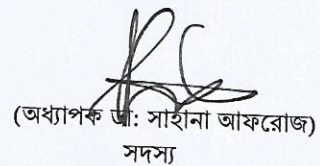 (অধ্যাপক ডা: সাহানা আফরোজ)
সদস্য